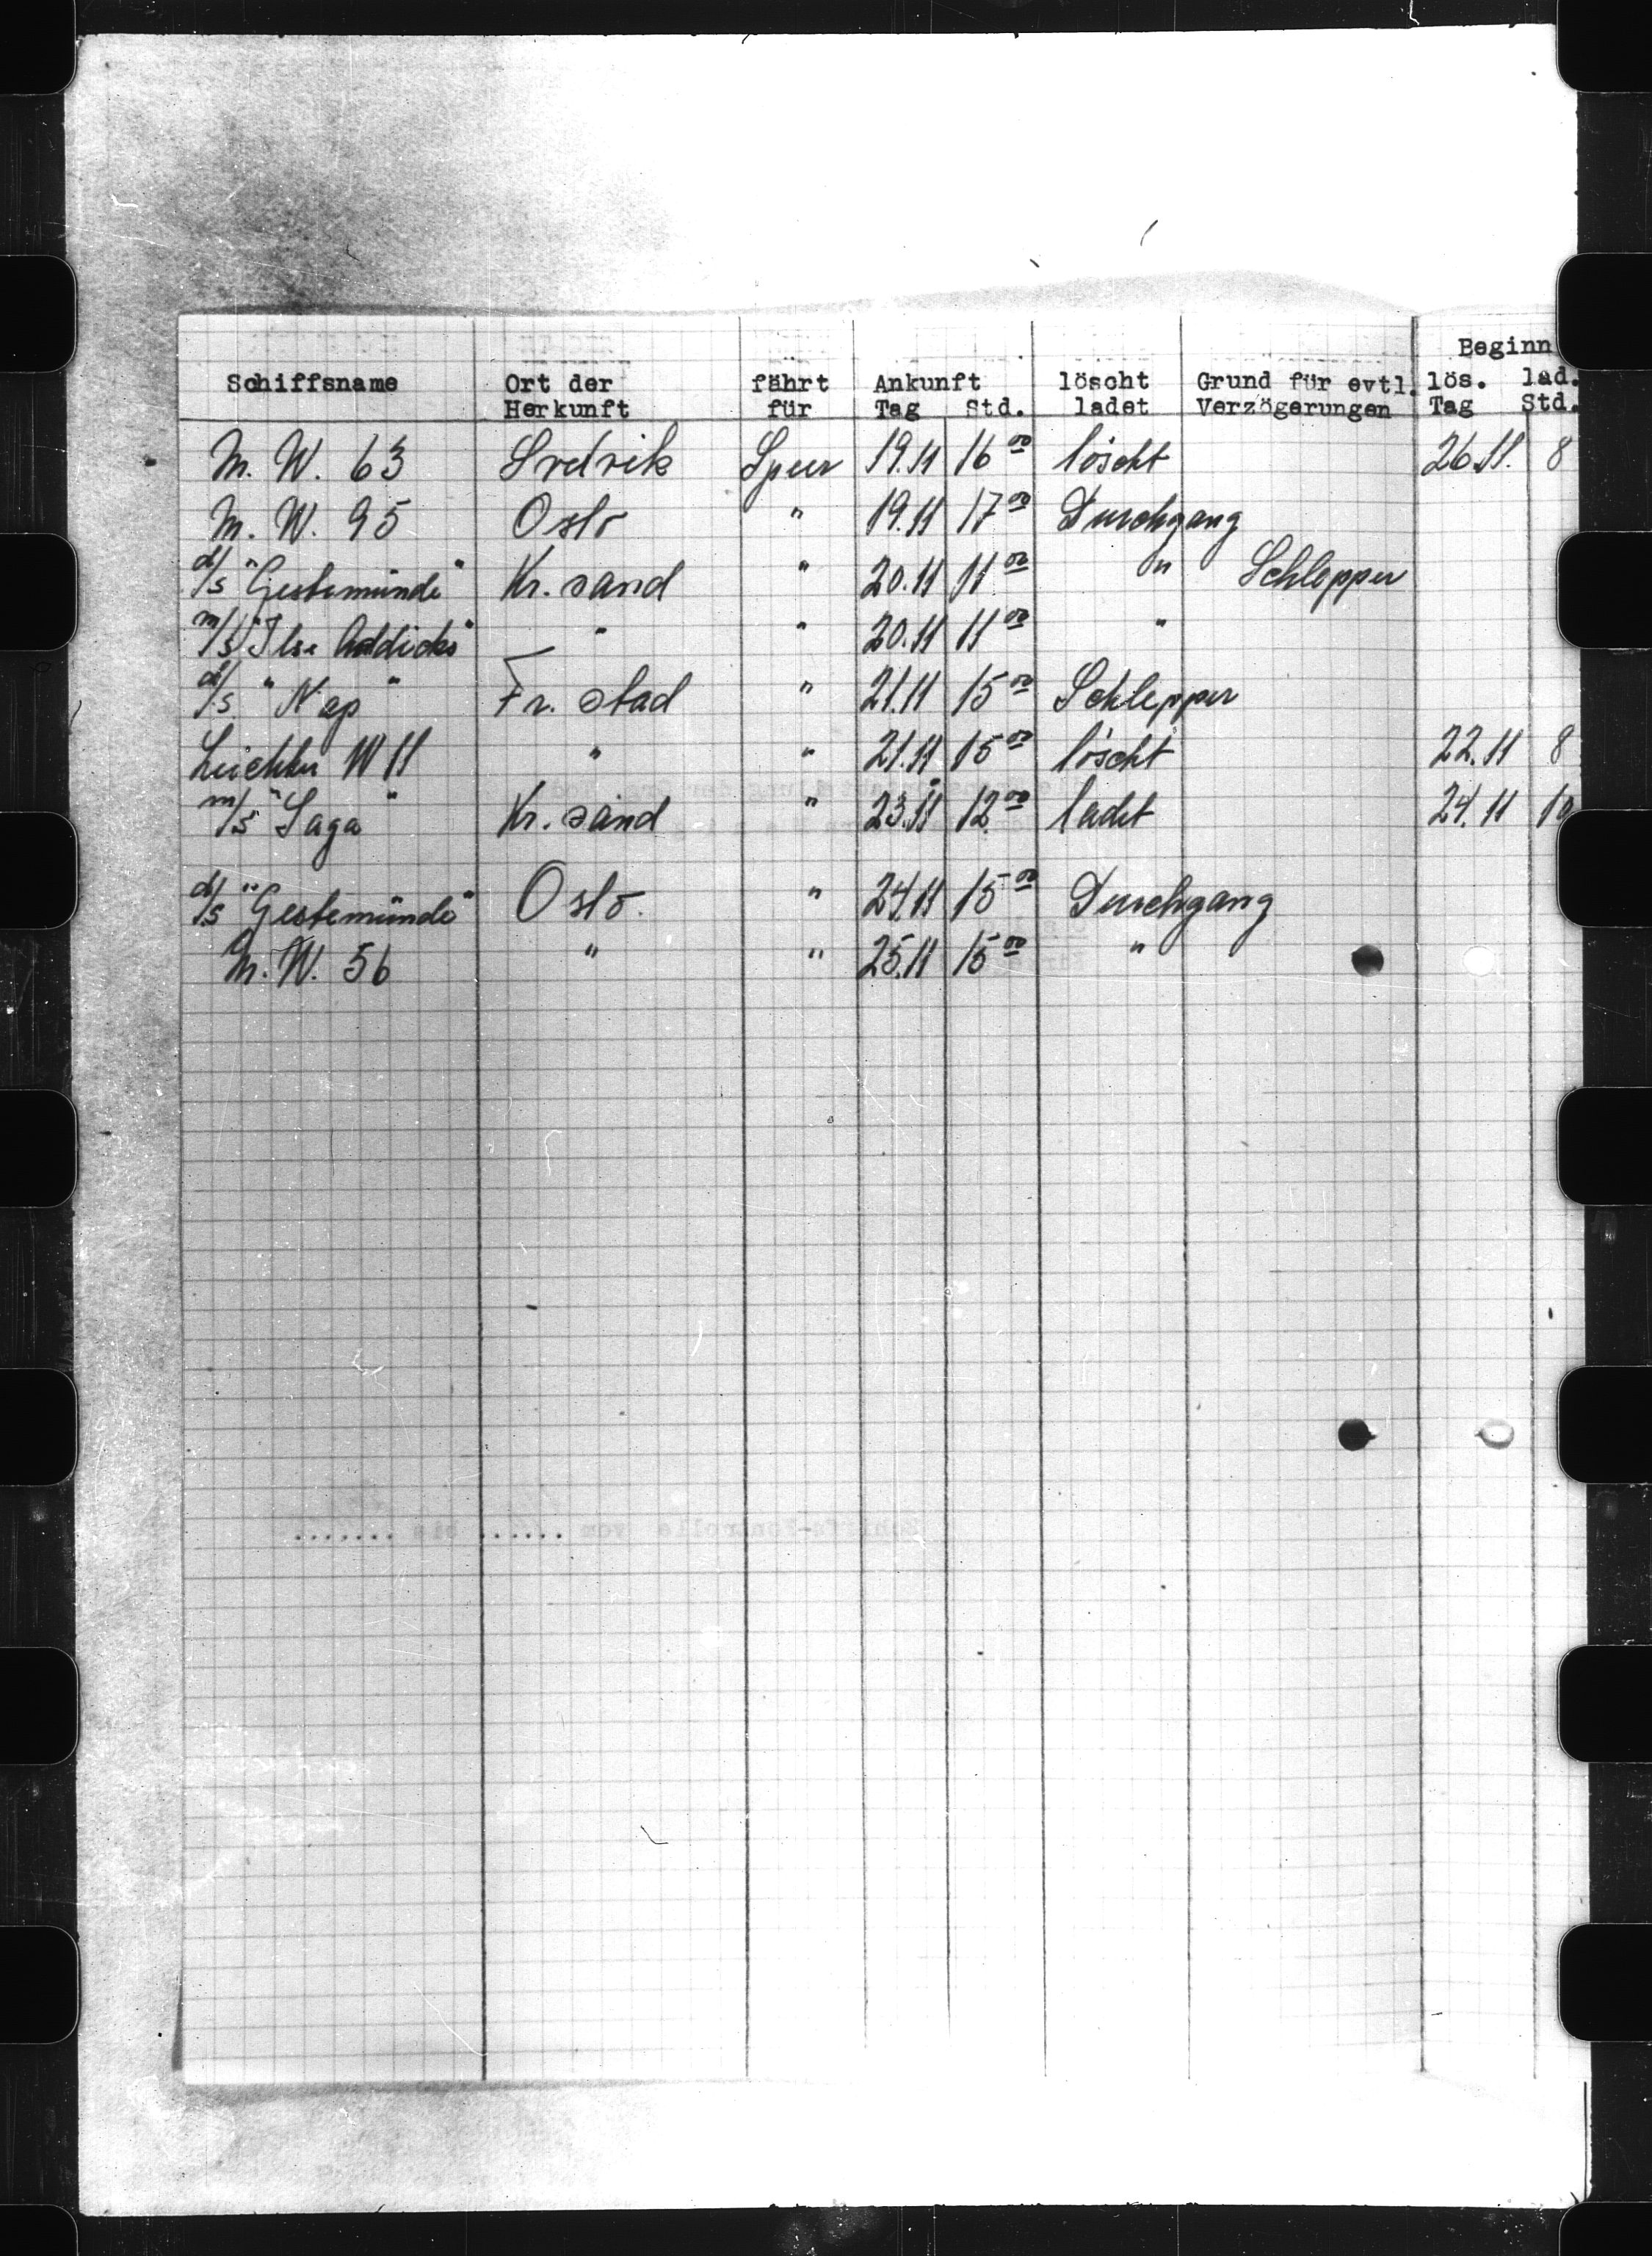 Beginn
Schiffsname Ort der fährt Ankunft löscht Grund für evtl. lös. lad.
Herkunft für Tag Std. ladet Verzögerungen Tag Std.
M. W. 63 Speer 19.11 16 00 löscht 26.11. 8
M. W. 95 Oslo " 19.11 17 00 Durchgang
d/s "Gestemünde" Kr. sand " 20.11 11 00 " Schlepper
m/s "Ilse Addicks" " " 20.11 11 00 "
d/s "Nap" Fr. stad " 21.11 15 00 Schlepper
Leichter W 11 " " 21.11 15 00 löscht 22.11 8
m/s "Saga" Kr. sand " 23.11 12 00 ladet 24.11 10
d/s "Gestemünde" Oslo. " 24.11 15 00 Durchgang
M. W. 56 " " 25.11 15 00 "
Schiffs-Kontrolle vom ...... bis .......